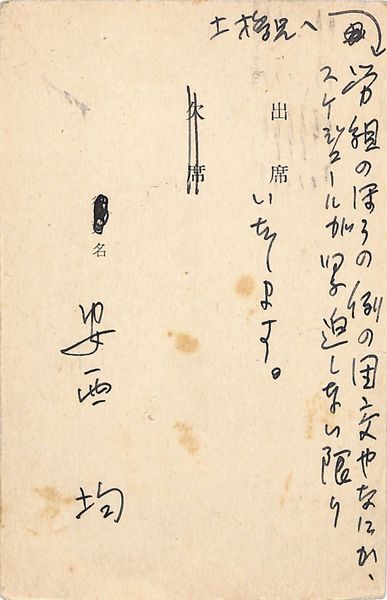 土橋兄へ
労組のほうの例の団交やなにか、
スケジュールが緊迫しない限り
出席いたします。
欠席
名 安西 均